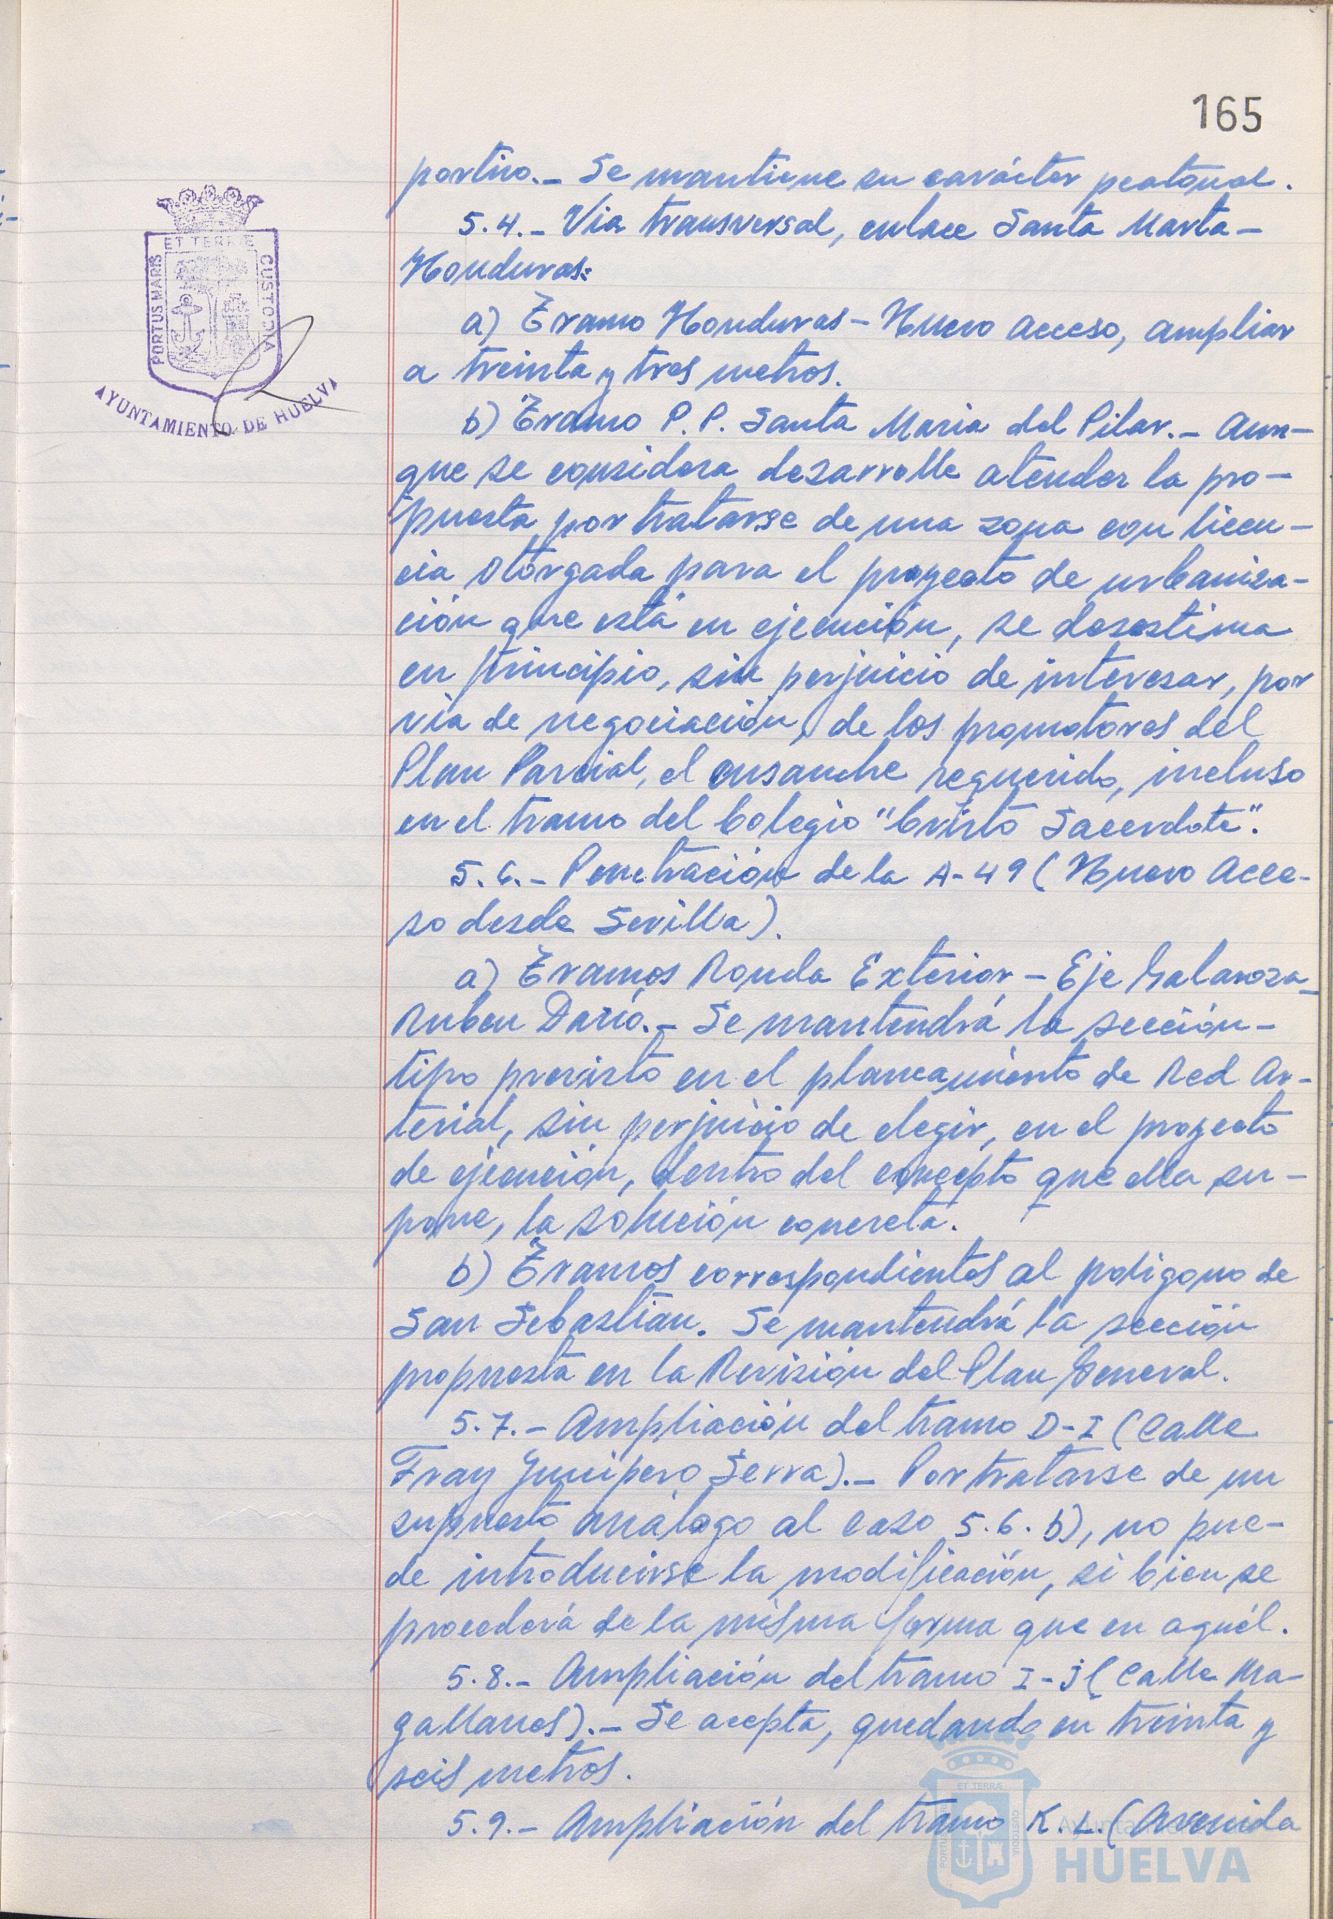 165
portivo.- Se mantiene su carácter peatonal.
5.4.- Vía transversal, enlace Santa Marta-
Honduras:
a) Tramo Honduras - Nuevo Acceso, ampliar
a treinta y tres metros.
b) Tramo P.P. Santa Maria del Pilar.- Aun-
que se considera desarrolle atender la pro-
puesta por tratarse de una zona con licen-
cia otorgada para el proyecto de urbaniza-
ción que está en ejecución, se desestima
en principio, sin perjuicio de interesar, por
vía de negociación, de los promotores del
Plan Parcial, el ensanche requerido, incluso
en el tramo del Colegio "Cristo Sacerdote".
5.6.- Penetración de la A-49 (Nuevo Acce-
so desde Sevilla).
a) Tramos Ronda Exterior - Eje Galaroza-
Ruben Darío.- Se mantendrá la sección-
tipo previsto en el planeamiento de Red Ar-
terial, sin perjuicio de elegir, en el proyecto
de ejecución, dentro del concepto que ella su-
pone, la solución concreta.
b) Tramos correspondientes al polígono de
San Sebastián. Se mantendrá la sección
propuesta en la Revisión del Plan General.
5.7.- Ampliación del tramo D-I (Calle
Fray Junípero Serra).- Por tratarse de un
supuesto análogo al caso 5.6.b), no pue-
de introducirse la modificación, si bien se
procederá de la misma forma que en aquél.
5.8.- Ampliación del tramo I-J (Calle Ma-
gallanes).- Se acepta, quedando en treinta y
seis metros.
5.9.- Ampliación del tramo K.L. (Avenida
PORTUS MARIS ET TERRÆ CUSTODIA
AYUNTAMIENTO DE HUELVA
PORTUS MARIS ET TERRÆ CUSTODIA
Ayuntamiento de
HUELVA